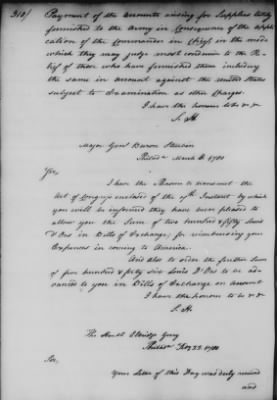 310/
Payment of the Amounts arising for Supplies lately
furnished to the Army in Consequence of the Appli
cation of the Commander in Chief in the mode
which they may judge most conducive to the Re
lief of those who have furnished them including
the same in Account against the United States
subject to Examination as other Charges.
I have the honour to be &c &c
S. H.
Major Genl Baron Steuben
Philada March 1780
Sir,
I have the Pleasure to transmit the
Act of Congress enclosed of the Instant by which
you will be informed they have been pleased to
allow you the Sum of two hundred & fifty Louis
D'Ors in Bills of Exchange, for reimbursing your
Expences in coming to America.
And also to order the further Sum
of five hundred & fifty six Louis D'Ors to be ad
vanced to you in Bills of Exchange on Account
I have the honour to be &c &c
S. H.
The Honbl Elbridge Gerry
Philada Feby 23. 1780
Sir,
Your Letter of this Day was duly received
and